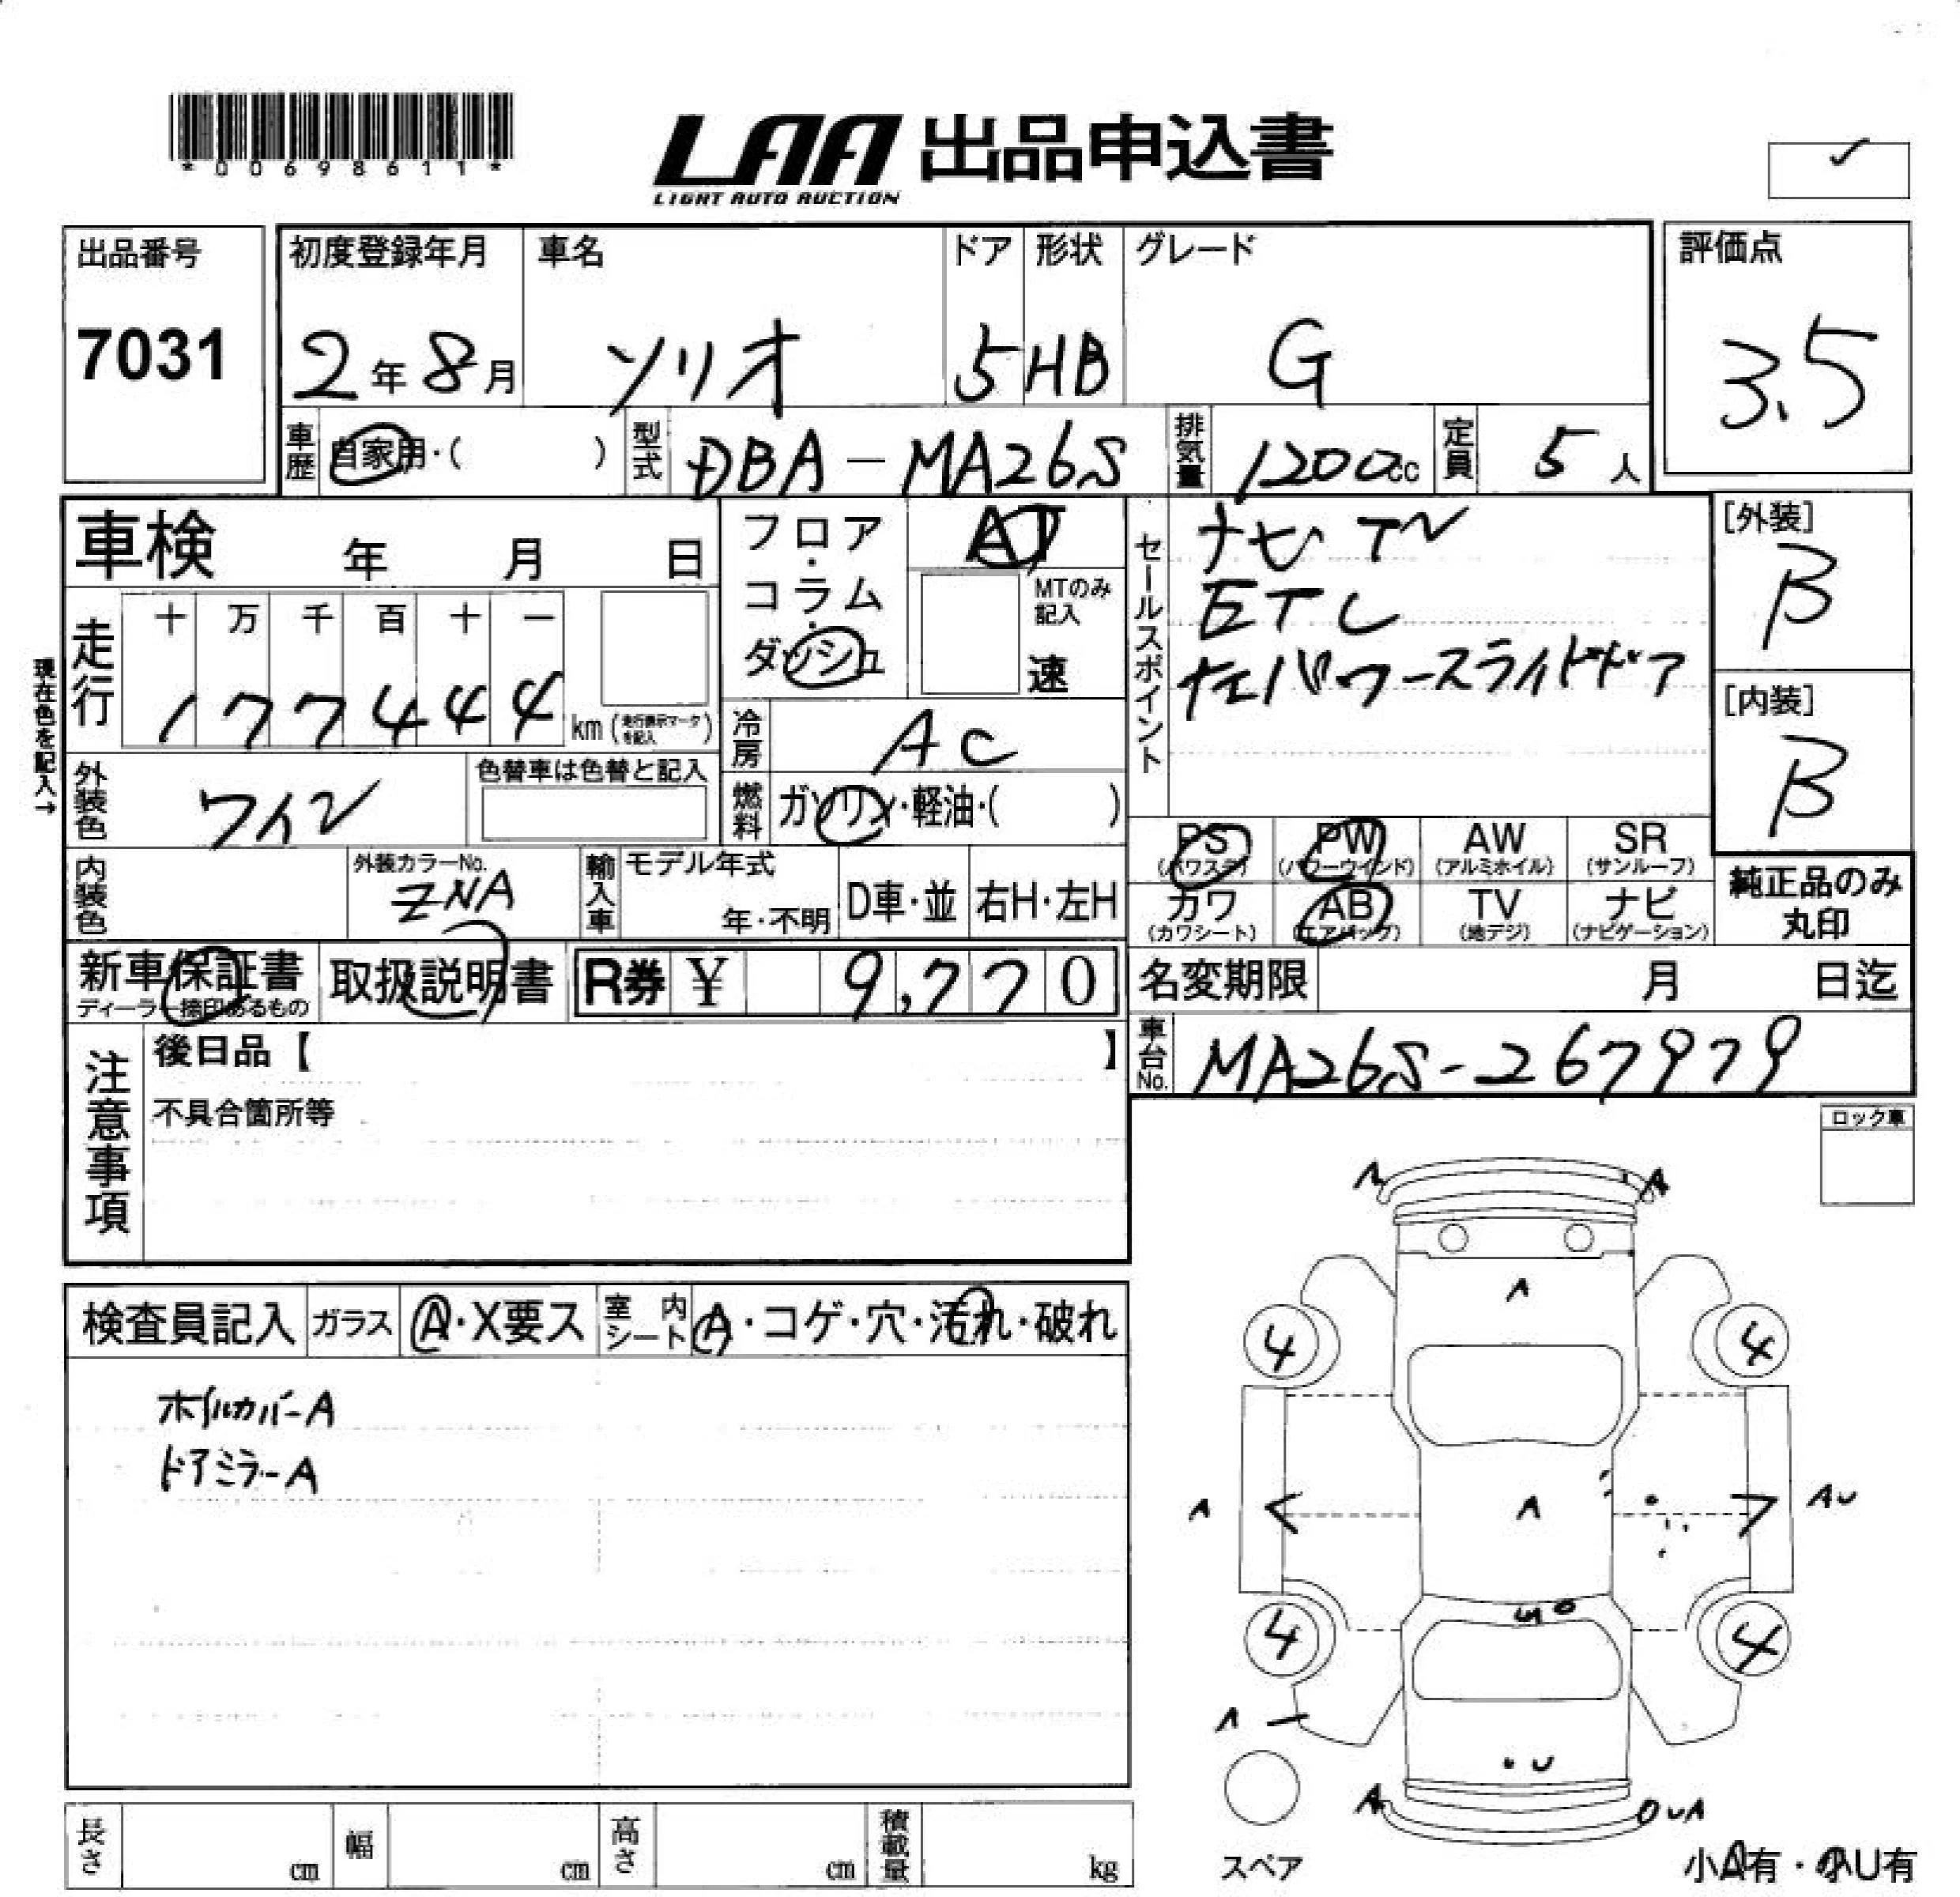 *00698611*
LAA 出品申込書
LIGHT AUTO AUCTION
出品番号
7031
初度登録年月
2年8月
車名
ソリオ
ドア
5
形状
HB
グレード
G
評価点
3.5
車歴
自家用・( )
型式
DBA-MA26S
排気量
1200cc
定員
5人
車検 年 月 日
フロア・コラム・ダッシュ
AT
MTのみ記入
速
セールスポイント
ナビ TV
ETC
左パワースライドドア
[外装]
B
[内装]
B
現在色を記入→
走行
十 万 千 百 十 一
1 7 7 4 4 4
km(走行表示マークを記入)
冷房
AC
外装色
ワイン
色替車は色替と記入
燃料
ガソリン・軽油・( )
PS (パワステ)
PW (パワーウインド)
AW (アルミホイル)
SR (サンルーフ)
カワ (カワシート)
AB (エアバッグ)
TV (地デジ)
ナビ (ナビゲーション)
純正品のみ丸印
内装色
外装カラーNo.
ZNA
輸入車
モデル年式
年・不明
D車・並
右H・左H
新車保証書
ディーラー捺印あるもの
取扱説明書
R券 ¥ 9,770
名変期限 月 日迄
車台No.
MA26S-267979
注意事項
後日品【 】
不具合箇所等
ロック車
検査員記入
ガラス
A・X要ス
室内シート
A・コゲ・穴・汚れ・破れ
ホイルカバーA
ドアミラーA
A
A
A
4
4
A
A
AU
4
4
A
U
A
UA
スペア
長さ cm
幅 cm
高さ cm
積載量 kg
小A有・小U有